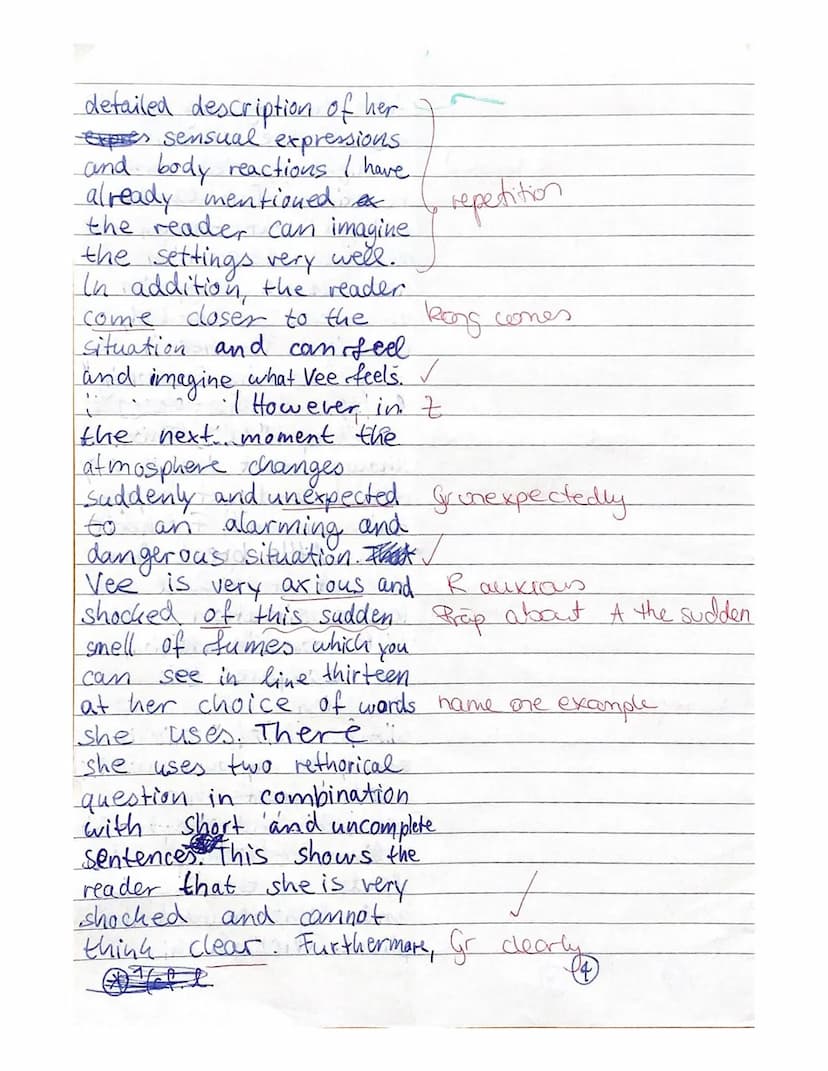 detailed description of her
sensual expressions
and body reactions I have
already mentioned
repetition
the reader can imagine
the settings very well.
In addition, the reader
come closer to the
Kong comes
situation and can feel
and imagine what Vee feels. ✓
! However, in Z
the next moment the
atmosphere changes
suddenly and unexpected Gr unexpectedly
to an alarming and
dangerous situation. ✓
Vee is very axious and R anxious
shocked of this sudden Präp about A the sudden
smell of fumes which you
can see in line thirteen
at her choice of words name one example
she uses. There
she uses two rethorical
question in combination
with short and uncomplete
sentences. This shows the
reader that she is very
shocked and cannot ✓
think clear. Furthermore, Gr clearly
4